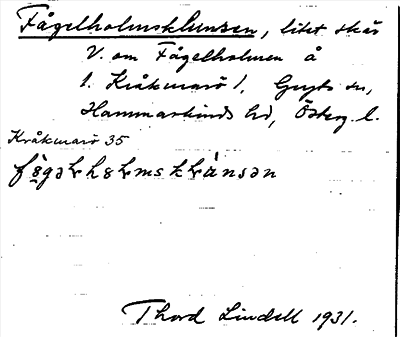 Fågelholmsklunsen, litet skär
V. om Fågelholmen å
1. Kråkmarö 1, Gryts sn,
Hammarkinds hd, Österg. l.
Kråkmarö 35
Thord Lindell 1931.